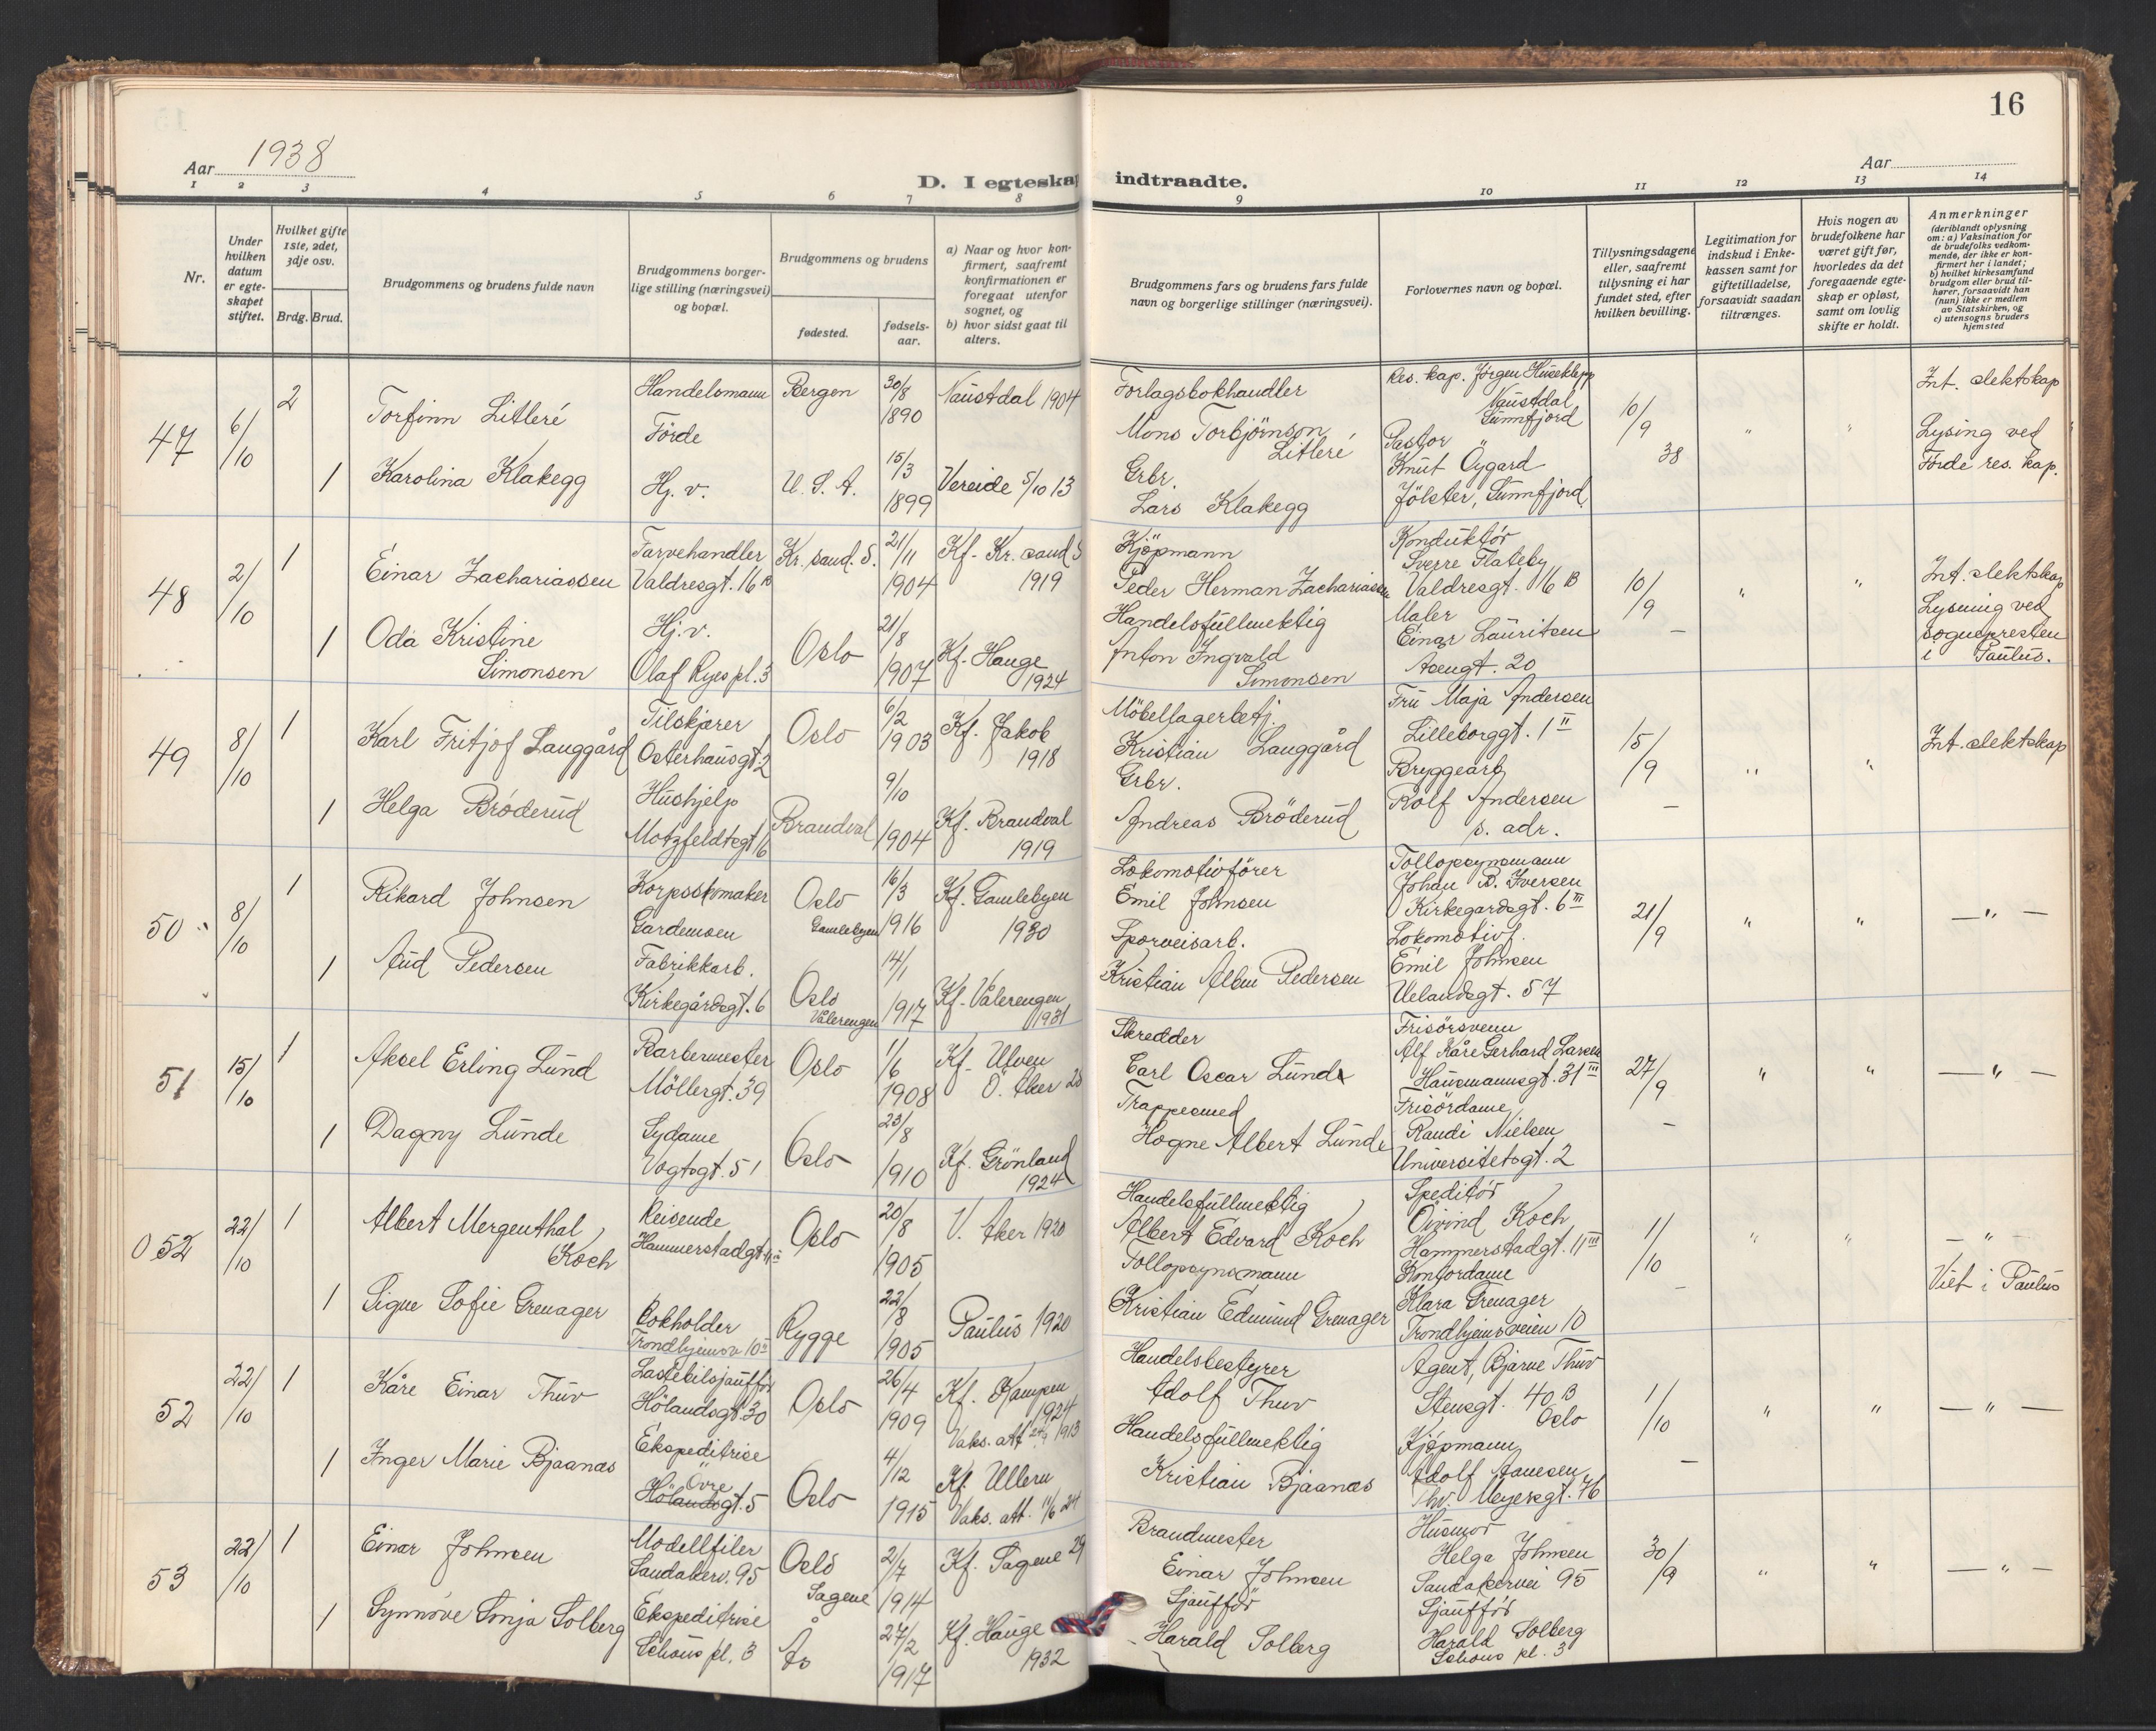 16
Aar 1938
Aar
D. I egteskap indtraadte.
1 2 3 4 5 6 7 8 9 10 11 12 13 14
Nr.
Under
hvilken
datum
er egte-
skapet
stiftet.
Hvilket gifte
1ste, 2det,
3dje osv.
Brdg. Brud.
Brudgommens og brudens fulde navn
Brudgommens borger-
lige stilling (næringsvei)
og bopæl.
Brudgommens og brudens
fødested.
fødsels-
aar.
a) Naar og hvor kon-
firmert, saafremt
konfirmationen er
foregaat utenfor
sognet, og
b) hvor sidst gaat til
alters.
Brudgommens fars og brudens fars fulde
navn og borgerlige stillinger (næringsvei).
Forlovernes navn og bopæl.
Tillysningsdagene
eller, saafremt
tillysning ei har
fundet sted, efter
hvilken bevilling.
Legitimation for
indskud i Enke-
kassen samt for
giftetilladelse,
forsaavidt saadan
tiltrænges.
Hvis nogen av
brudefolkene har
været gift før,
hvorledes da det
foregaaende egte-
skap er opløst,
samt om lovlig
skifte er holdt.
Anmerkninger
(deriblandt oplysning
om: a) Vaksination for
de brudefolks vedkom-
mende, der ikke er kon-
firmert her i landet;
b) hvilket kirkesamfund
brudgom eller brud til-
hører, forsaavidt han
(hun) ikke er medlem
av Statskirken, og
c) utensogns bruders
hjemsted
47
6/10
2
Torfinn Litleré
Handelsmann
Förde
Bergen
30/8
1890
Naustdal 1904
Forlagsbokhandler
Mons Torbjörnson
Litleré
Res. kap. Jörgen Huseklepp
Naustdal
Sunnfjord
10/9 38
" "
Int. slektskap
Lysing ved
Förde res. kap.
1
Karolina Klakegg
Hj. v.
U. S. A.
15/3
1899
Vereide 5/10 13
Grbr.
Lars Klakegg
Pastor
Knut Öygard
Jölster, Sunnfjord
48
2/10
1
Einar Zachariassen
Farvehandler
Valdresgt. 16 B
Kr. sand. S.
21/11
1904
Kf. Kr. sand S
1919
Kjöpmann
Peder Herman Zachariassen
Konduktör
Sverre Flateby
Valdresgt. 16 B
10/9 -
" "
Int. slektskap
Lysning ved
sognepresten
i Paulus.
1
Oda Kristine
Simonsen
Hj. v.
Olaf Ryes pl. 3
Oslo
21/8
1907
Kf. Hauge
1924
Handelsfullmektig
Anton Ingvald
Simonsen
Maler
Einar Lauritsen
Aasengt. 20
49
8/10
1
Karl Fritjof Langgård
Tilskjærer
Osterhausgt. 2
Oslo
6/2
1903
Kf. Jakob
1918
Möbellagerbetj.
Kristian Langgård
Fru Maja Andersen
Lilleborggt. 1 II
15/9 -
" "
Int. slektskap
1
Helga Bröderud
Hushjelp
Motzfeldtsgt 16
Brandval
9/10
1904
Kf. Brandval
1919
Grbr.
Andreas Bröderud
Bryggearb.
Rolf Andersen
s. adr.
50
8/10
1
Rikard Johnsen
Korpsskomaker
Gardemoen
Oslo
Gamlebyen
16/3
1916
Kf. Gamlebyen
1930
Lokomotivförer
Emil Johnsen
Tollopsynsmann
Johan B. Iversen
Kirkegårdsgt. 6 III
21/9
" "
— " —
1
Aud Pedersen
Fabrikkarb.
Kirkegårdsgt. 6
Oslo
Vålerengen
14/1
1917
Kf. Vålerengen
1931
Sporveisarb.
Kristian Albin Pedersen
Lokomotivf.
Emil Johnsen
Uelandsgt. 57
51
15/10
1
Aksel Erling Lund
Barbermester
Möllergt. 39
Oslo
1/6
1908
Kf. Ulven
Ö. Aker 23
Skredder
Carl Oscar Lund
Frisörsvenn
Alf Kåre Gerhard Larsen
Hausmannsgt. 31 III
27/9 -
" "
— " —
1
Dagny Lunde
Sydame
Vogtsgt. 51
Oslo
23/8
1910
Kf. Grönland
1924
Trappesmed
Hogne Albert Lunde
Frisördame
Randi Nielsen
Universitetsgt. 2
0 52
22/10
1
Albert Mergenthal
Koch
Reisende
Hammerstadgt 11 III
Oslo
20/8
1905
V. Aker 1920
Handelsfullmektig
Albert Edvard Koch
Speditör
Öivind Koch
Hammerstadgt. 11 III
1/10 -
" "
— " —
Viet i Paulus
1
Signe Sofie Grenager
Bokholder
Trondhjemsv 10 II
Rygge
22/8
1905
Paulus 1920
Tollopsynsmann
Kristian Edmund Grenager
Kontordame
Klara Grenager
Trondhjemsveien 10
52
22/10
1
Kåre Einar Thuv
Lastebilsjaufför
Hölandsgt 30
Oslo
26/4
1909
Kf. Kampen
1924
Vaks. att 24/9 1913
Handelsbestyrer
Adolf Thuv
Agent, Bjarne Thuv
Stensgt. 40 B
Oslo
1/10 -
" "
— " —
1
Inger Marie Bjaanæs
Ekspeditrise
Övre
Hölandsgt. 5
Oslo
4/12
1915
Kf. Ullern
Vaks. att. 11/6 24
Handelsfullmektig
Kristian Bjaanæs
Kjöpmann
Adolf Aanesen
Thv. Meyersgt. 76
53
22/10
1
Einar Johnsen
Modellfiler
Sandakerv. 95
Oslo
Sagene
2/7
1914
Kf. Sagene 29
Brandmester
Einar Johnsen
Husmor
Helga Johnsen
Sandakervei 95
30/9
" "
— " —
1
Synnöve Sonja Solberg
Ekspeditrise
Schous pl. 3
Ås
27/2
1917
Kf. Hauge
1932
Sjaufför
Harald Solberg
Sjaufför
Harald Solberg
Schous pl. 3